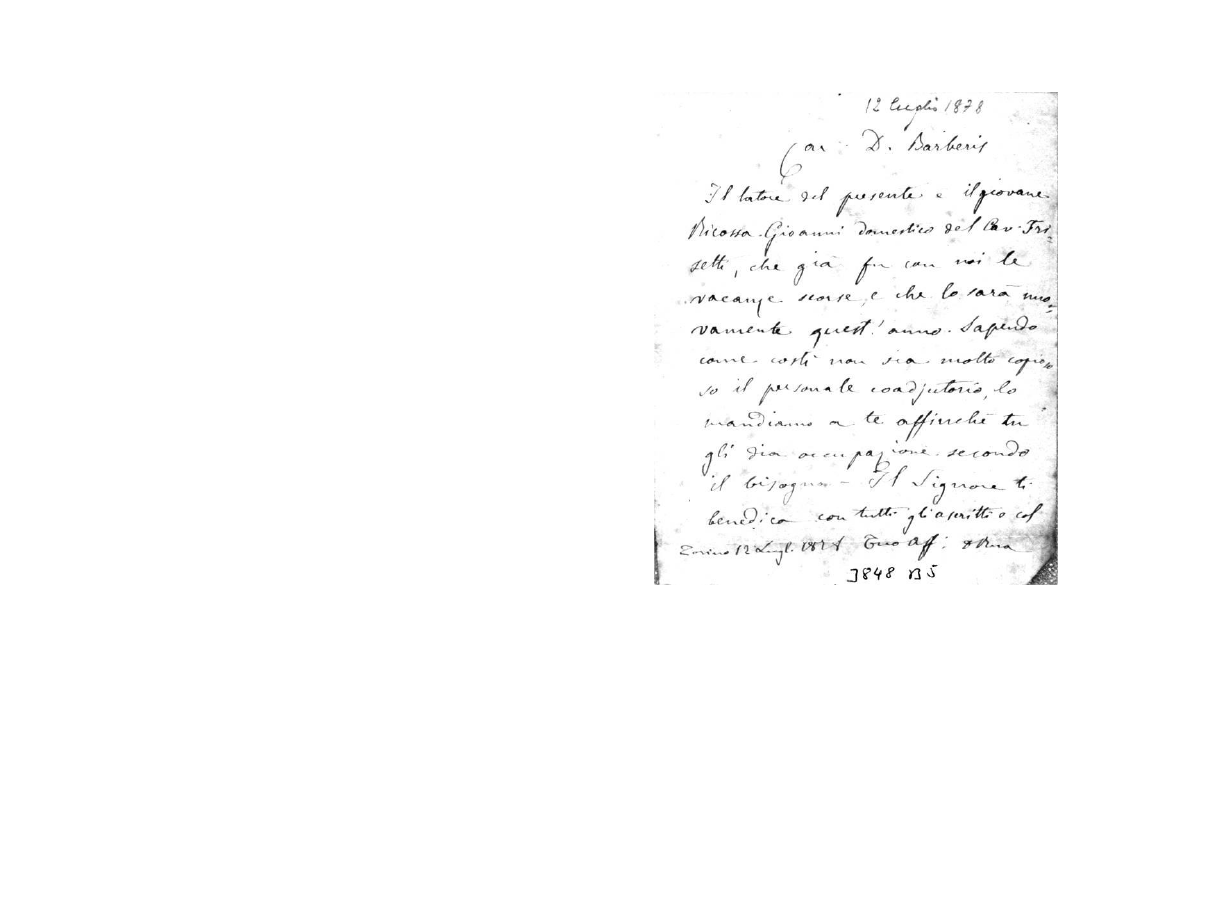 12 Luglio 1878
Car. D. Barberis
Il latore del presente è il giovane
Bicossa Gioanni domestico del Cav. Fri=
setti, che già fu con noi le
vacanze scorse, e che lo sarà nuo=
vamente quest'anno. Sapendo
come costì non sia molto copio=
so il personale coadjutorio, lo
mandiamo a te affinchè tu
gli dia occupazione secondo
il bisogno - Il Signore ti
benedica con tutti gli ascritti e
Torino 12 Lugl. 1878 Tuo Aff: D Rua
3848 B5